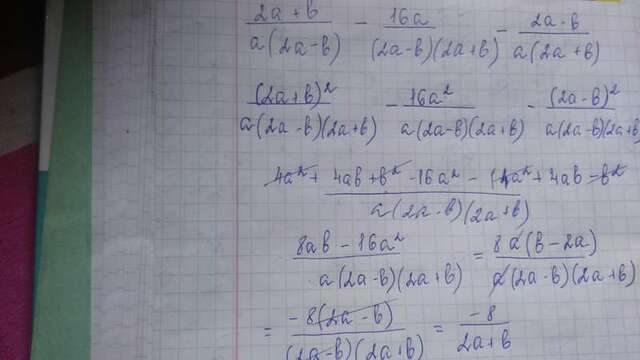 2a+b - 16a - 2a-b
a(2a-b) (2a-b)(2a+b) a(2a+b)
(2a+b)² - 16a² - (2a-b)²
a(2a-b)(2a+b) a(2a-b)(2a+b) a(2a-b)(2a+b)
4a²+4ab+b²-16a²-4a²+4ab-b²
a(2a-b)(2a+b)
8ab-16a² = 8a(b-2a)
a(2a-b)(2a+b) a(2a-b)(2a+b)
= -8(2a-b) = -8
(2a-b)(2a+b) 2a+b